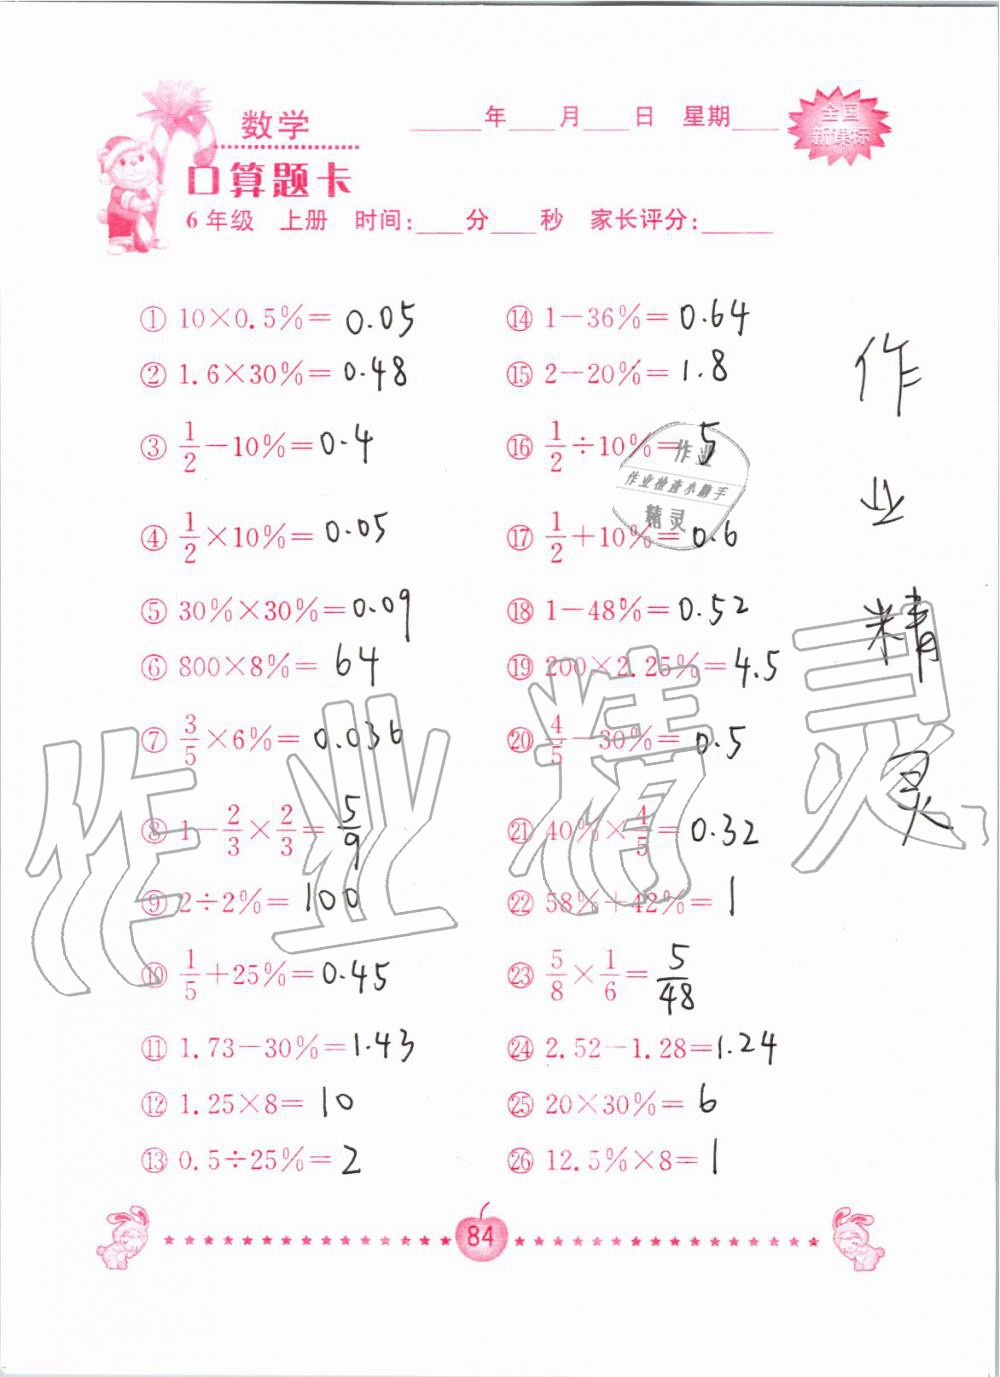 数学
____年____月____日 星期____
全国
新课标
口算题卡
6年级 上册 时间:____分____秒 家长评分:______
① 10×0.5%=0.05
② 1.6×30%=0.48
③ 1/2-10%=0.4
④ 1/2×10%=0.05
⑤ 30%×30%=0.09
⑥ 800×8%=64
⑦ 3/5×6%=0.036
⑧ 1-2/3×2/3=5/9
⑨ 2÷2%=100
⑩ 1/5+25%=0.45
⑪ 1.73-30%=1.43
⑫ 1.25×8=10
⑬ 0.5÷25%=2
⑭ 1-36%=0.64
⑮ 2-20%=1.8
⑯ 1/2÷10%=5
⑰ 1/2+10%=0.6
⑱ 1-48%=0.52
⑲ 200×2.25%=4.5
⑳ 4/5-30%=0.5
㉑ 40%×4/5=0.32
㉒ 58%+42%=1
㉓ 5/8×1/6=5/48
㉔ 2.52-1.28=1.24
㉕ 20×30%=6
㉖ 12.5%×8=1
作业
作业检查小助手
精灵
作业精灵
作业精灵
84